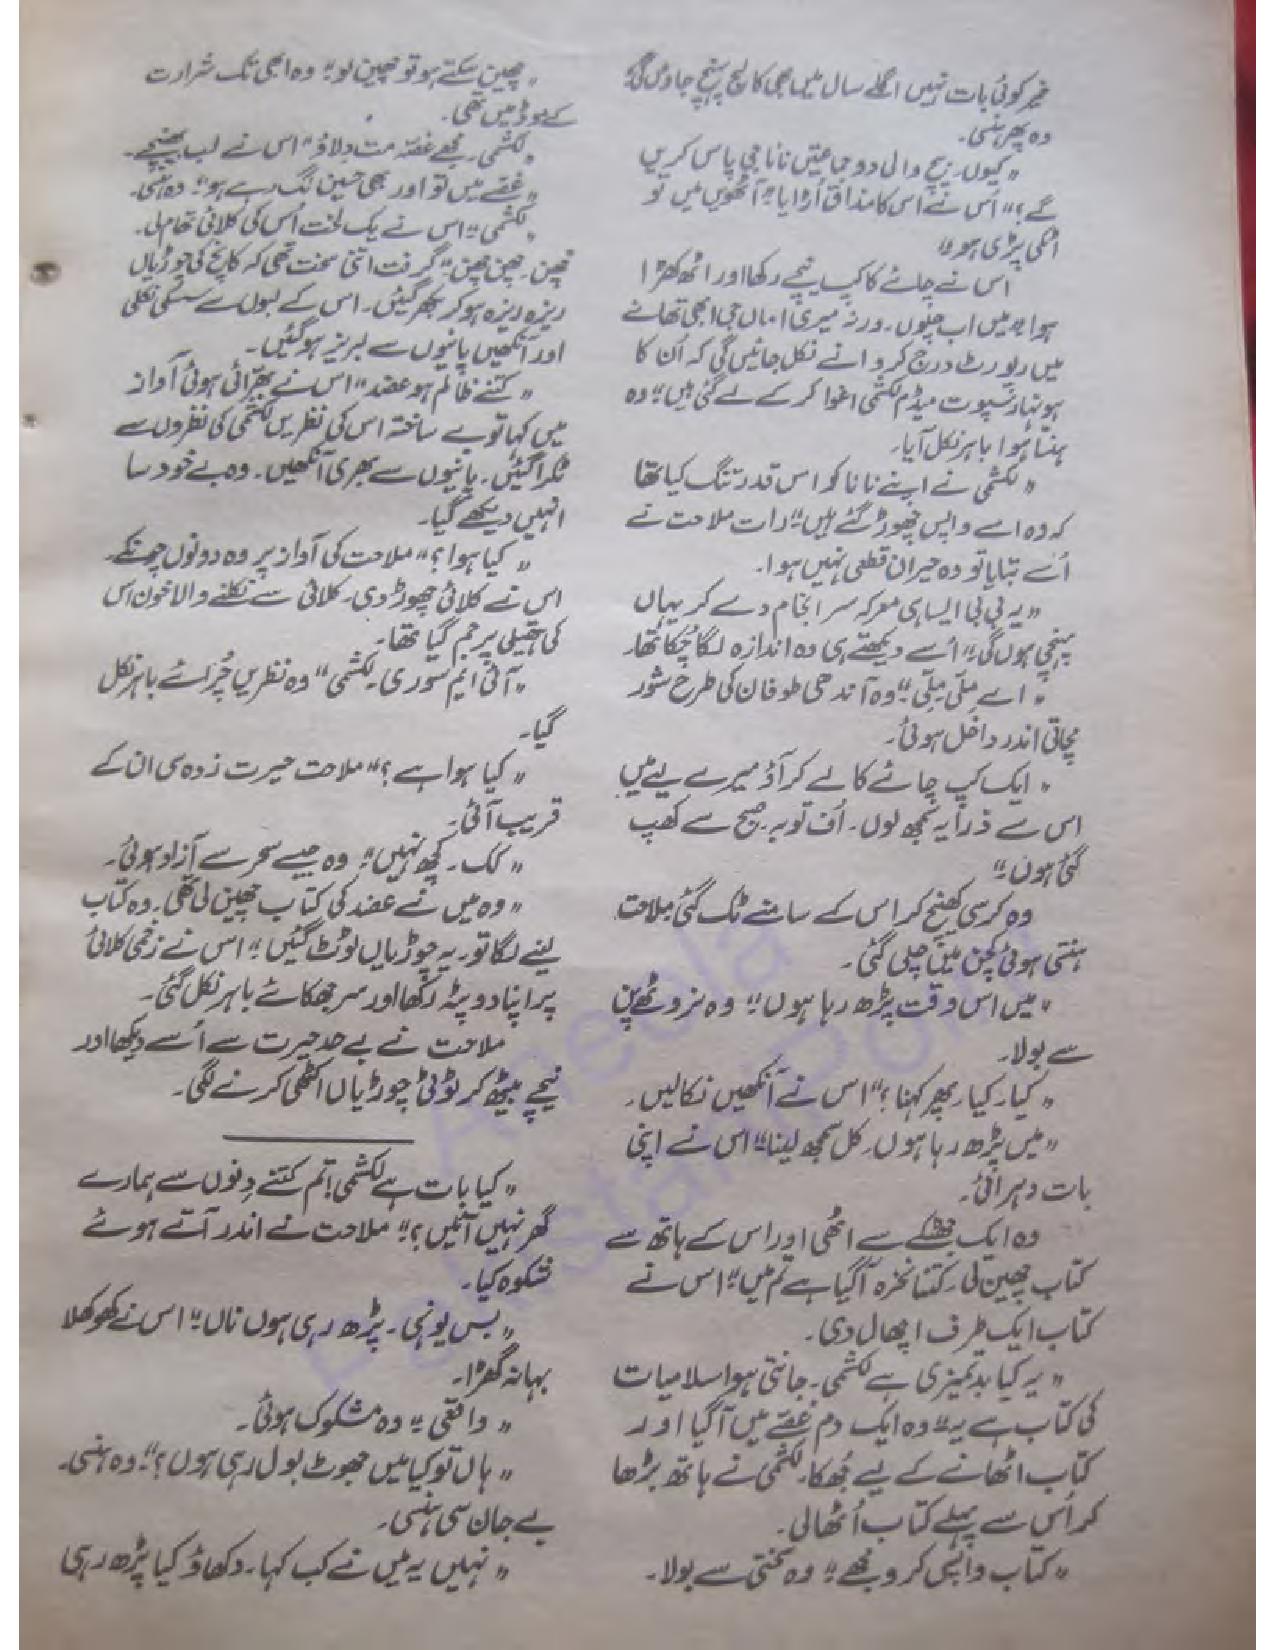 خیر کوئی بات نہیں اگلے سال میں بھی کالج پہنچ جاؤں گی"
وہ پھر ہنسی۔
"کیوں۔ بیچ والی دو جماعتیں نانا جی پاس کریں
گے؟" اُس نے اس کا مذاق اُڑایا۔" آٹھویں میں تو
اٹکی پڑی ہو"
اس نے چائے کا کپ نیچے رکھا اور اٹھ کھڑا
ہوا "میں اب چلوں۔ ورنہ میری اماں جی ابھی تھانے
میں رپورٹ درج کروانے نکل جائیں گی کہ اُن کا
ہونہار سپوت میڈم لکشمی اغوا کر کے لے گئی ہیں" وہ
ہنستا ہوا باہر نکل آیا۔
"لکشمی نے اپنے نانا کو اس قدر تنگ کیا تھا
کہ وہ اسے واپس چھوڑ گئے ہیں" رات ملاحت نے
اُسے بتایا تو وہ حیران قطعی نہیں ہوا۔
"یہ بی بی ایسا ہی معرکہ سرانجام دے کر یہاں
پہنچی ہوں گی" اُسے دیکھتے ہی وہ اندازہ لگا چُکا تھا۔
"اے مِلّی۔ مِلّی" وہ آندھی طوفان کی طرح شور
مچاتی اندر داخل ہوئی۔
"ایک کپ چائے کا لے کر آؤ میرے لیے میں
اس سے ذرا یہ سمجھ لوں۔ اُف توبہ۔ صبح سے کھپ
گئی ہوں۔"
وہ کرسی کھینچ کر اس کے سامنے ٹک گئی ملاحت
ہنستی ہوئی کچن میں چلی گئی۔
"میں اس وقت پڑھ رہا ہوں" وہ نروٹھے پن
سے بولا۔
"کیا۔ کیا۔ پھر کہنا؟" اس نے آنکھیں نکالیں۔
"میں پڑھ رہا ہوں۔ کل سمجھ لینا" اس نے اپنی
بات دہرائی۔
وہ ایک جھٹکے سے اٹھی اور اس کے ہاتھ سے
کتاب چھین لی۔ کتنا نخرہ آگیا ہے تم میں" اس نے
کتاب ایک طرف اچھال دی۔
"یہ کیا بدتمیزی ہے لکشمی۔ جانتی ہو اسلامیات
کی کتاب ہے یہ" وہ ایک دم غصّے میں آگیا اور
کتاب اٹھانے کے لیے جُھکا۔ لکشمی نے ہاتھ بڑھا
کر اُس سے پہلے کتاب اُٹھالی۔
"کتاب واپس کرو مجھے" وہ سختی سے بولا۔
"چھین سکتے ہو تو چھین لو" وہ ابھی تک شرارت
کے موڈ میں تھی۔
"لکشمی۔ مجھے غصّہ مت دلاؤ" اس نے لب بھینچے۔
"غصّے میں تو اور بھی حسین لگ رہے ہو" وہ ہنسی۔
"لکشمی" اس نے یک لخت اُس کی کلائی تھام لی۔
چھن۔ چھن چھن" گرفت اتنی سخت تھی کہ کانچ کی چوڑیاں
ریزہ ریزہ ہو کر بکھر گئیں۔ اس کے لبوں سے سسکی نکلی
اور آنکھیں پانیوں سے لبریز ہو گئیں۔
"کتنے ظالم ہو عضد" اس نے بھرّائی ہوئی آواز
میں کہا تو بے ساختہ اس کی نظریں لکشمی کی نظروں سے
ٹکرا گئیں۔ پانیوں سے بھری آنکھیں۔ وہ بے خود سا
انہیں دیکھے گیا۔
"کیا ہوا؟" ملاحت کی آواز پر وہ دونوں چونکے۔
اس نے کلائی چھوڑ دی۔ کلائی سے نکلنے والا خون اس
کی ہتھیلی پر جم گیا تھا۔
"آئی ایم سوری۔ لکشمی" وہ نظریں چُرائے باہر نکل
گیا۔
"کیا ہوا ہے؟" ملاحت حیرت زدہ سی ان کے
قریب آئی۔
"کک۔ کچھ نہیں" وہ جیسے سحر سے آزاد ہوئی۔
"وہ میں نے عضد کی کتاب چھین لی تھی۔ وہ کتاب
لینے لگا تو۔ یہ چوڑیاں ٹوٹ گئیں" اس نے زخمی کلائی
پر اپنا دوپٹہ رکھا اور سر جھکائے باہر نکل گئی۔
ملاحت نے بے حد حیرت سے اُسے دیکھا اور
نیچے بیٹھ کر ٹوٹی چوڑیاں اکٹھی کرنے لگی۔
"کیا بات ہے لکشمی تم کتنے دنوں سے ہمارے
گھر نہیں آئیں؟" ملاحت نے اندر آتے ہوئے
شکوہ کیا۔
"بس یونہی۔ پڑھ رہی ہوں ناں" اس نے کھوکھلا
بہانہ گھڑا۔
"واقعی" وہ مشکوک ہوئی۔
"ہاں تو کیا میں جھوٹ بول رہی ہوں؟" وہ ہنسی۔
بے جان سی ہنسی۔
"نہیں یہ میں نے کب کہا۔ دکھاؤ کیا پڑھ رہی
Aneela
Pakistanipoint